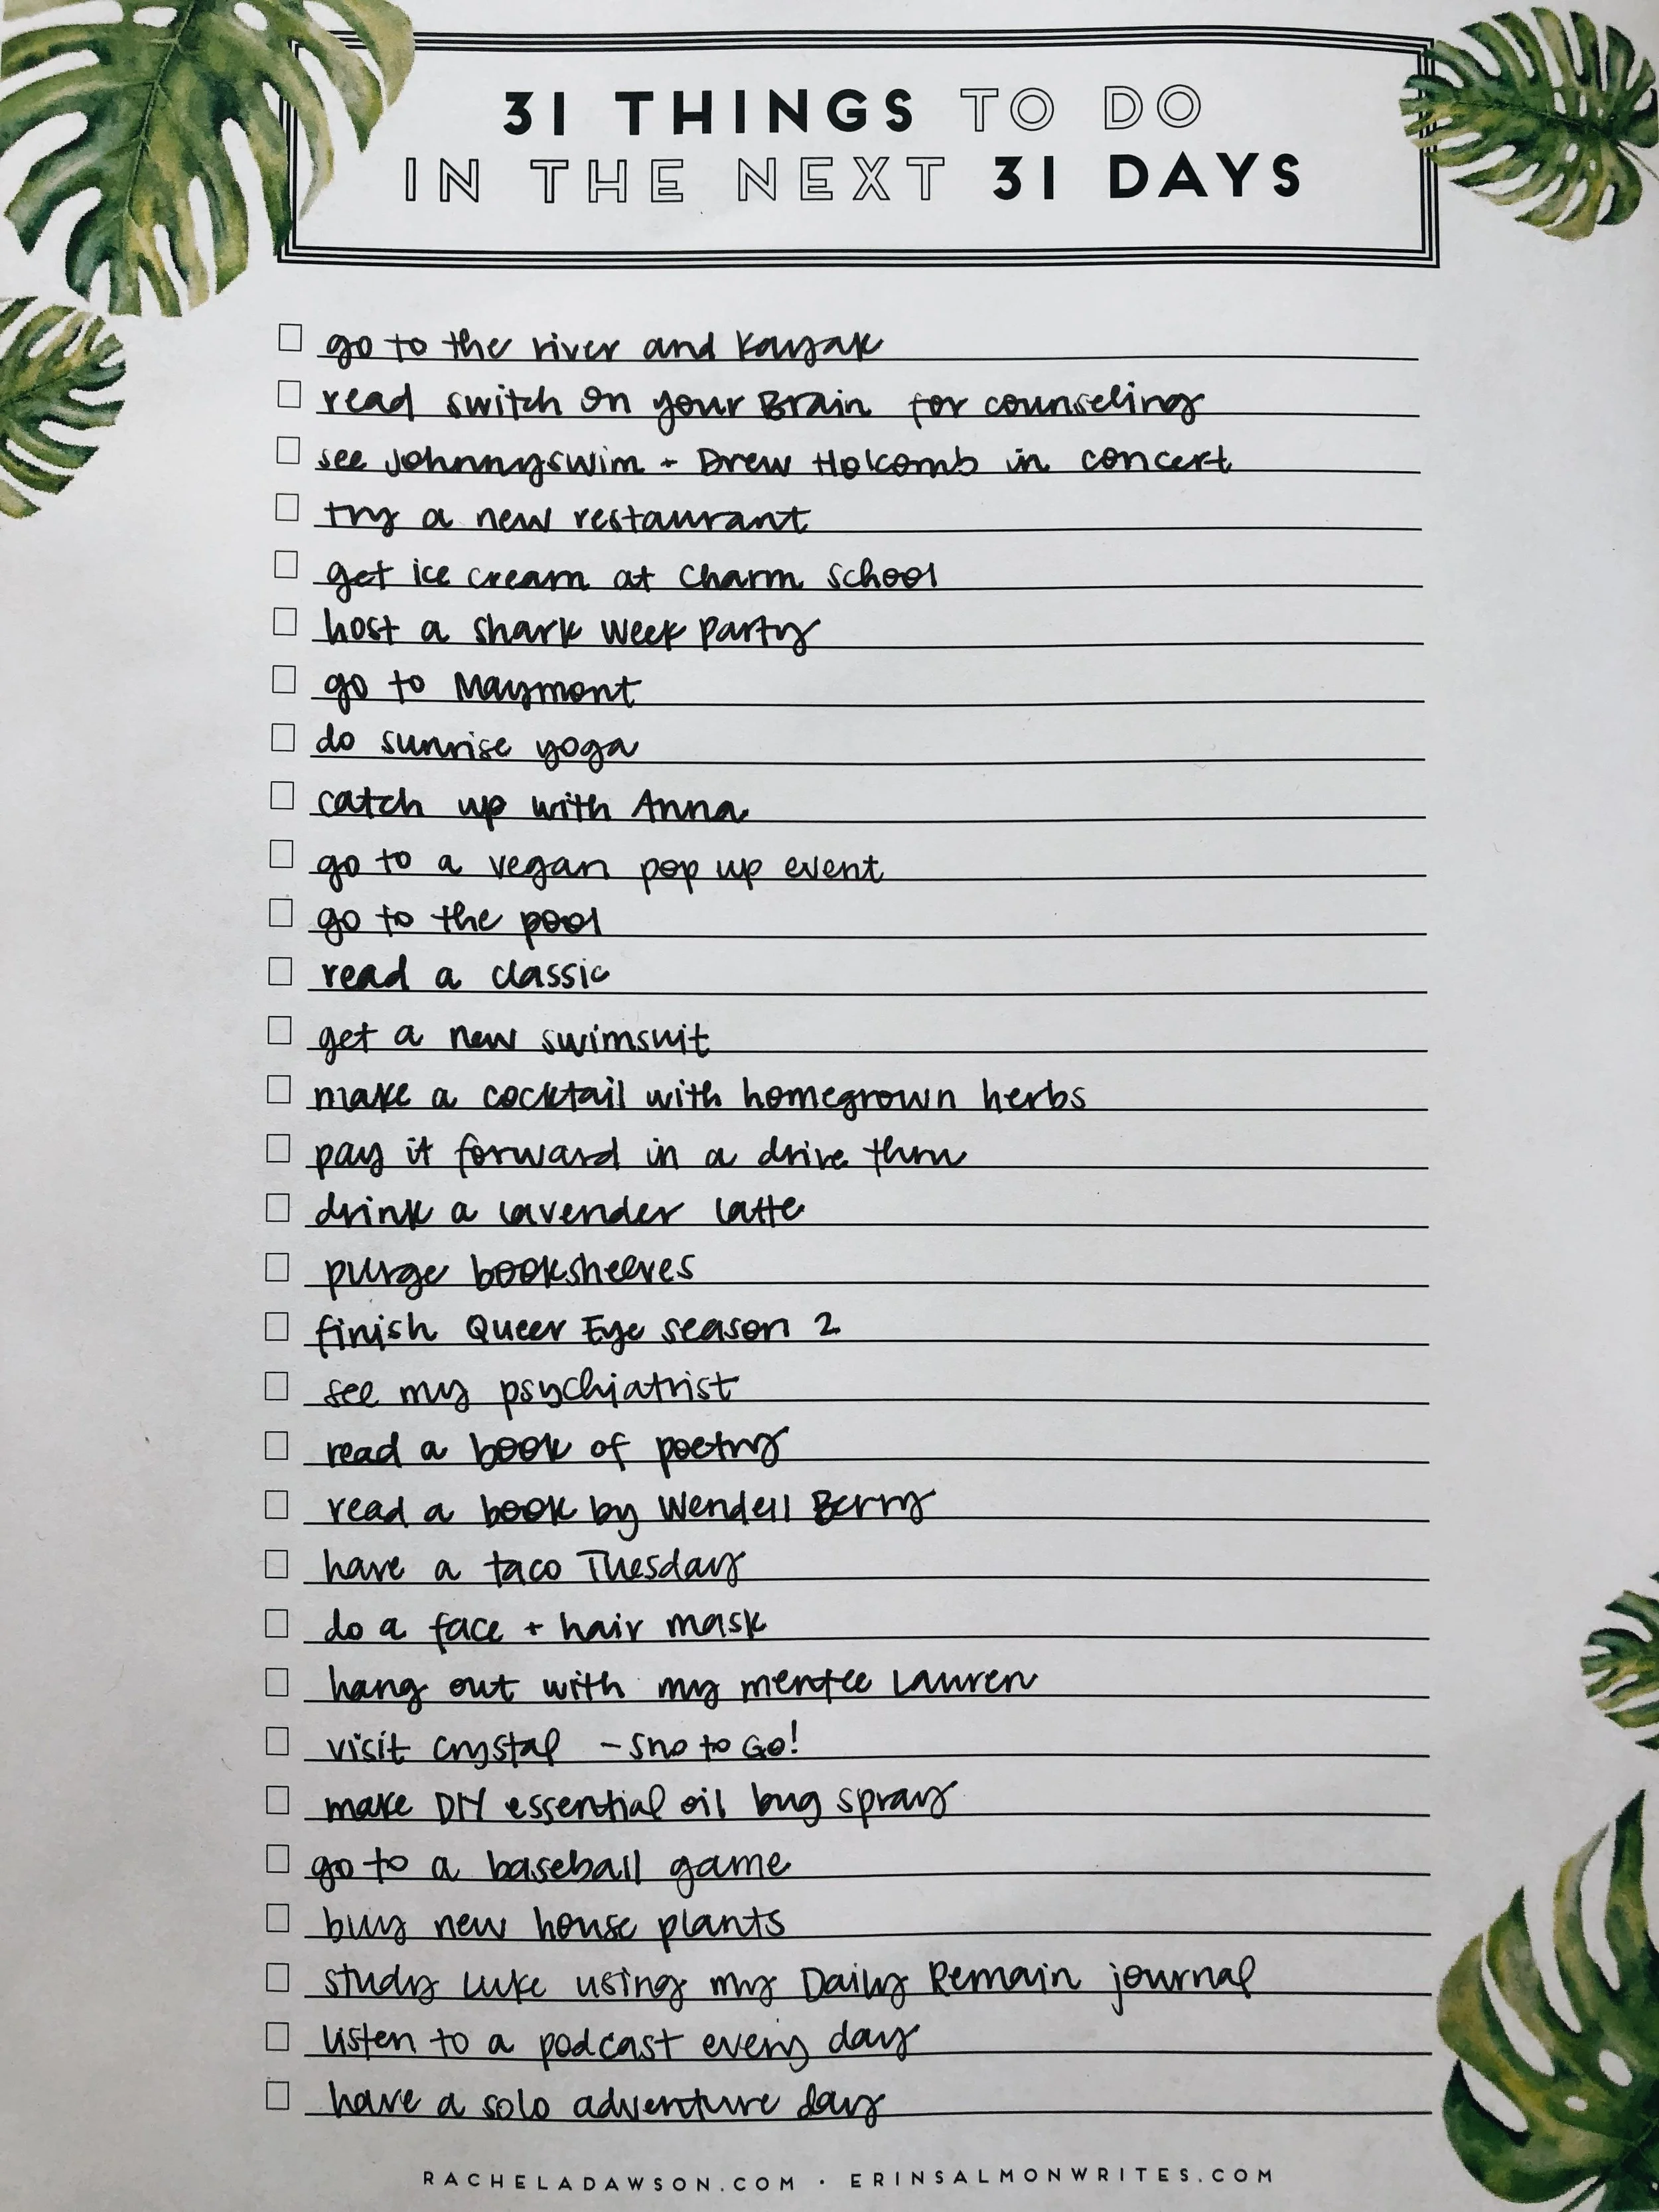 31 THINGS TO DO
IN THE NEXT 31 DAYS
go to the river and kayak
read switch on your Brain for counseling
see Johnnyswim + Drew Holcomb in concert
try a new restaurant
get ice cream at Charm School
host a shark week party
go to Maymont
do sunrise yoga
catch up with Anna
go to a vegan pop up event
go to the pool
read a classic
get a new swimsuit
make a cocktail with homegrown herbs
pay it forward in a drive thru
drink a lavender latte
purge booksheeves
finish Queer Eye season 2
see my psychiatrist
read a book of poetry
read a book by Wendell Berry
have a taco Tuesday
do a face + hair mask
hang out with my mentee Lauren
visit crystal - Sno to Go!
make DIY essential oil bug spray
go to a baseball game
buy new house plants
study Luke using my Daily Remain journal
listen to a podcast every day
have a solo adventure day
RACHELADAWSON.COM · ERINSALMONWRITES.COM